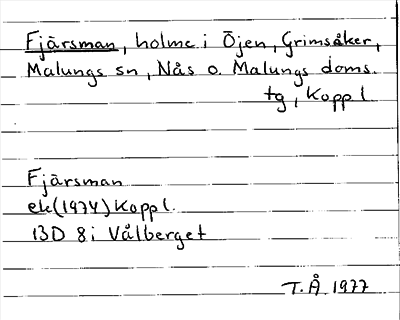 Fjärsman, holme i Öjen, Grimsåker,
Malungs sn, Nås o. Malungs doms.
tg, Koppl
Fjärsman
ek(1974) Koppl.
13D 8i Vålberget
T.Å 1977